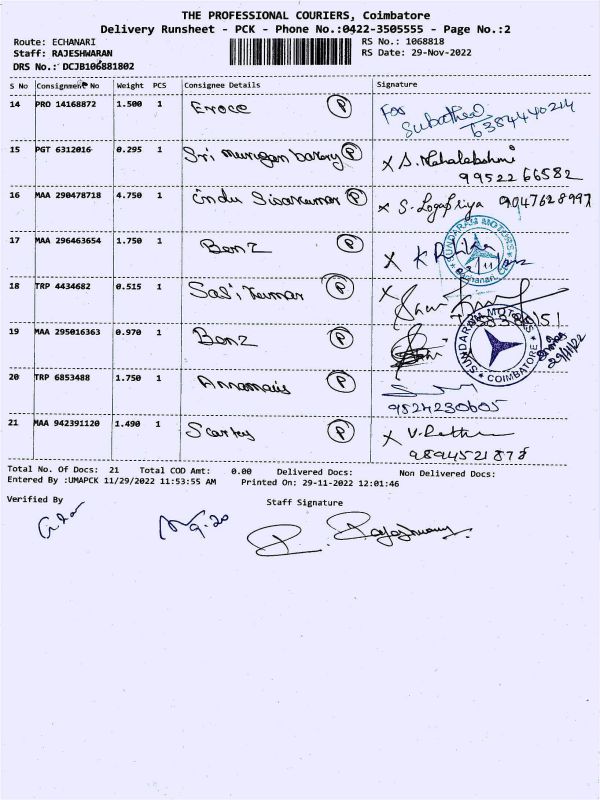 THE PROFESSIONAL COURIERS, Coimbatore
Delivery Runsheet - PCK - Phone No.:0422-3505555 - Page No.:2
Route: ECHANARI
RS No.: 1068818
Staff: RAJESHWARAN
RS Date: 29-Nov-2022
DRS No.: DCJB106881802
S No Consignment No Weight PCS Consignee Details Signature
14 PRO 14168872 1.500 1 P For
6384440214
15 PGT 6312016 0.295 1 Sri murugan P S. Mahalakshmi
99522 66582
16 MAA 290478718 4.750 1 Indu Sivakumar P S. Logapriya 9047628997
17 MAA 296463654 1.750 1 Benz P
SUNDARAM MOTORS
18 TRP 4434682 0.515 1 Sasi Kumar P
19 MAA 295016363 0.970 1 Benz P
SUNDARAM MOTORS COIMBATORE
29/11/22
20 TRP 6853488 1.750 1 P
9524230605
21 MAA 942391120 1.490 1 P
Total No. Of Docs: 21 Total COD Amt: 0.00 Delivered Docs: Non Delivered Docs:
Entered By :UMAPCK 11/29/2022 11:53:55 AM Printed On: 29-11-2022 12:01:46
Verified By Staff Signature
9.20